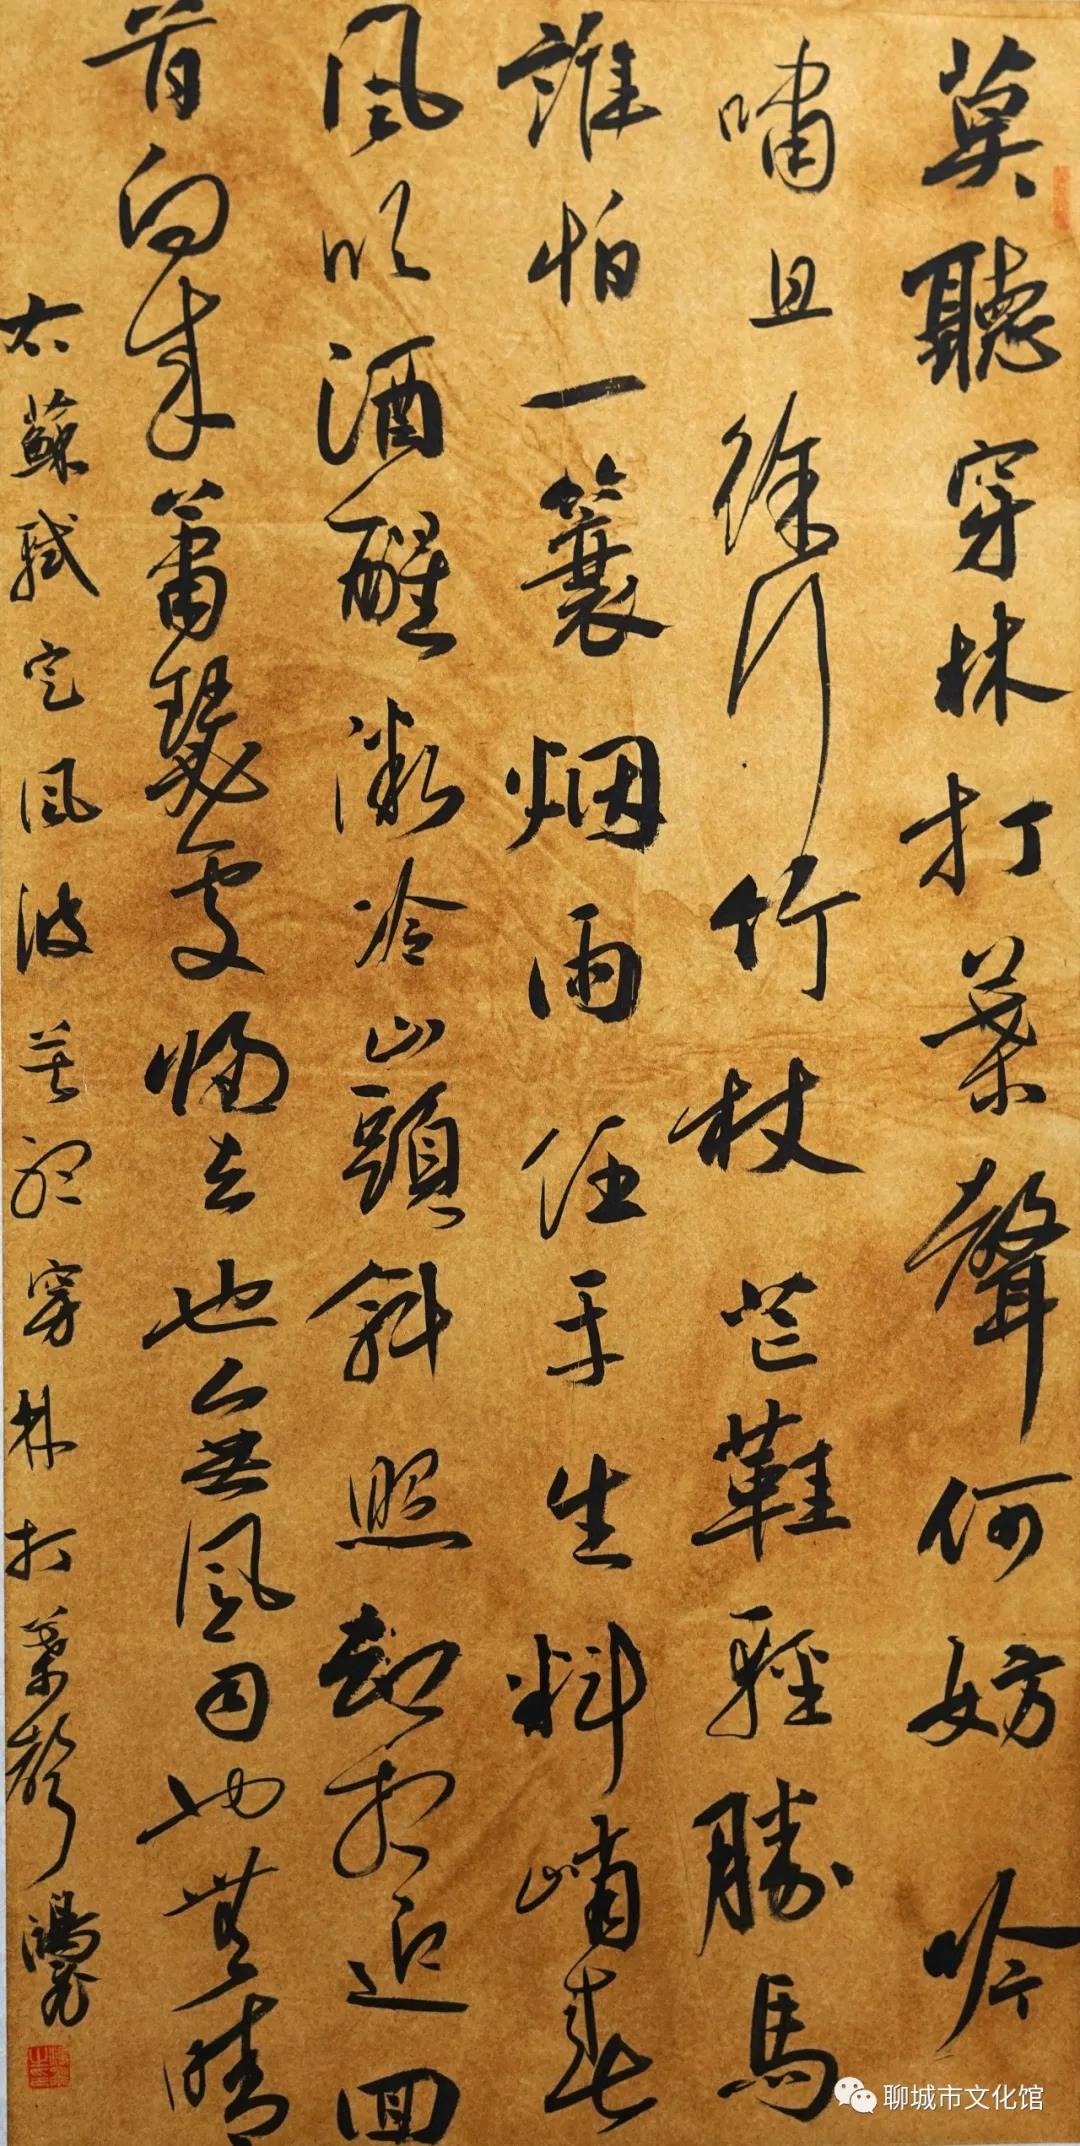 莫聽穿林打葉聲何妨吟
嘯且徐行竹杖芒鞋輕勝馬
誰怕一簑烟雨任平生料峭春
風吹酒醒微冷山頭斜照却相迎回
首向来蕭瑟處歸去也無風雨也無晴
右蘇軾定風波莫聽穿林打葉聲
聊城市文化馆